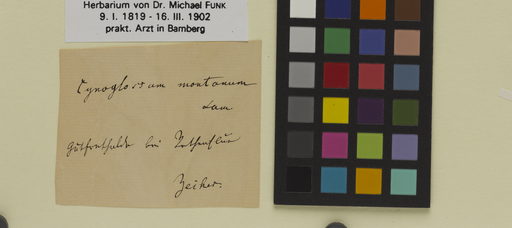 Herbarium von Dr. Michael FUNK
9. I. 1819 - 16. III. 1902
prakt. Arzt in Bamberg
Cynoglossum montanum
Lam
bei